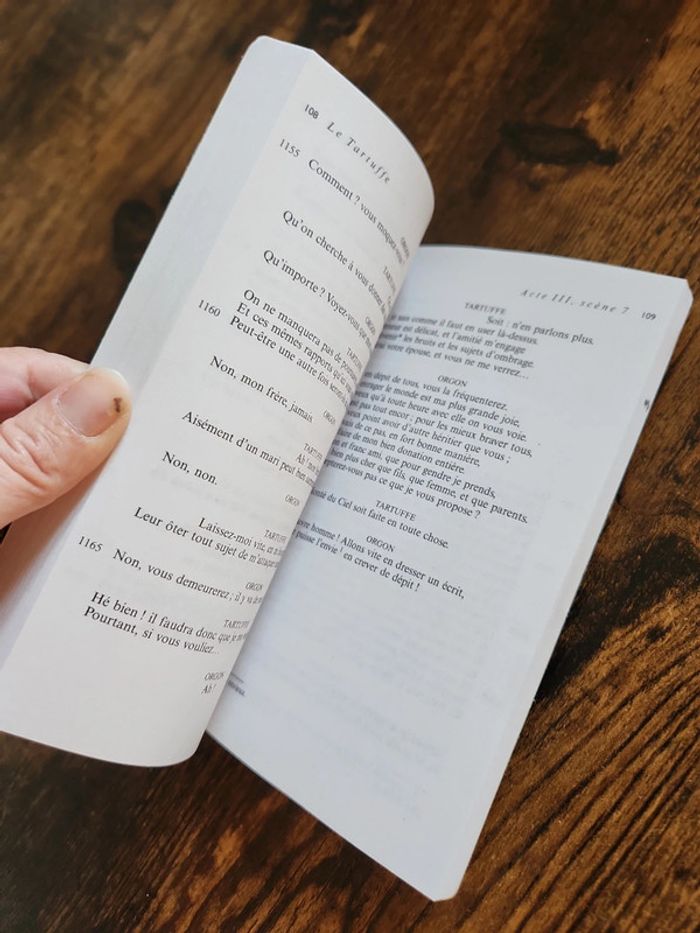 108 Le Tartuffe
ORGON
1155 Comment ? vous moquez-vous ?
TARTUFFE
Qu'on cherche à vous donner
ORGON
Qu'importe ? Voyez-vous que
TARTUFFE
On ne manquera pas de poursuivre
Et ces mêmes rapports qu'ici vous
1160 Peut-être une autre fois seront
ORGON
Non, mon frère, jamais
TARTUFFE
Ah !
Aisément d'un mari peut bien
ORGON
Non, non.
TARTUFFE
Laissez-moi vite, en
Leur ôter tout sujet de m'attaquer
ORGON
1165 Non, vous demeurerez ; il y va de
TARTUFFE
Hé bien ! il faudra donc que je me
Pourtant, si vous vouliez...
ORGON
Ah !
Acte III, scène 7 109
TARTUFFE
Soit : n'en parlons plus.
sais comme il faut en user là-dessus.
est délicat, et l'amitié m'engage
les bruits et les sujets d'ombrage.
votre épouse, et vous ne me verrez...
ORGON
en dépit de tous, vous la fréquenterez.
enrager le monde est ma plus grande joie,
qu'à toute heure avec elle on vous voie.
pas tout encor : pour les mieux braver tous,
point avoir d'autre héritier que vous ;
de ce pas, en fort bonne manière,
de mon bien donation entière.
et franc ami, que pour gendre je prends,
bien plus cher que fils, que femme, et que parents.
pas ce que je vous propose ?
TARTUFFE
du Ciel soit faite en toute chose.
ORGON
homme ! Allons vite en dresser un écrit,
puisse l'envie ! en crever de dépit !